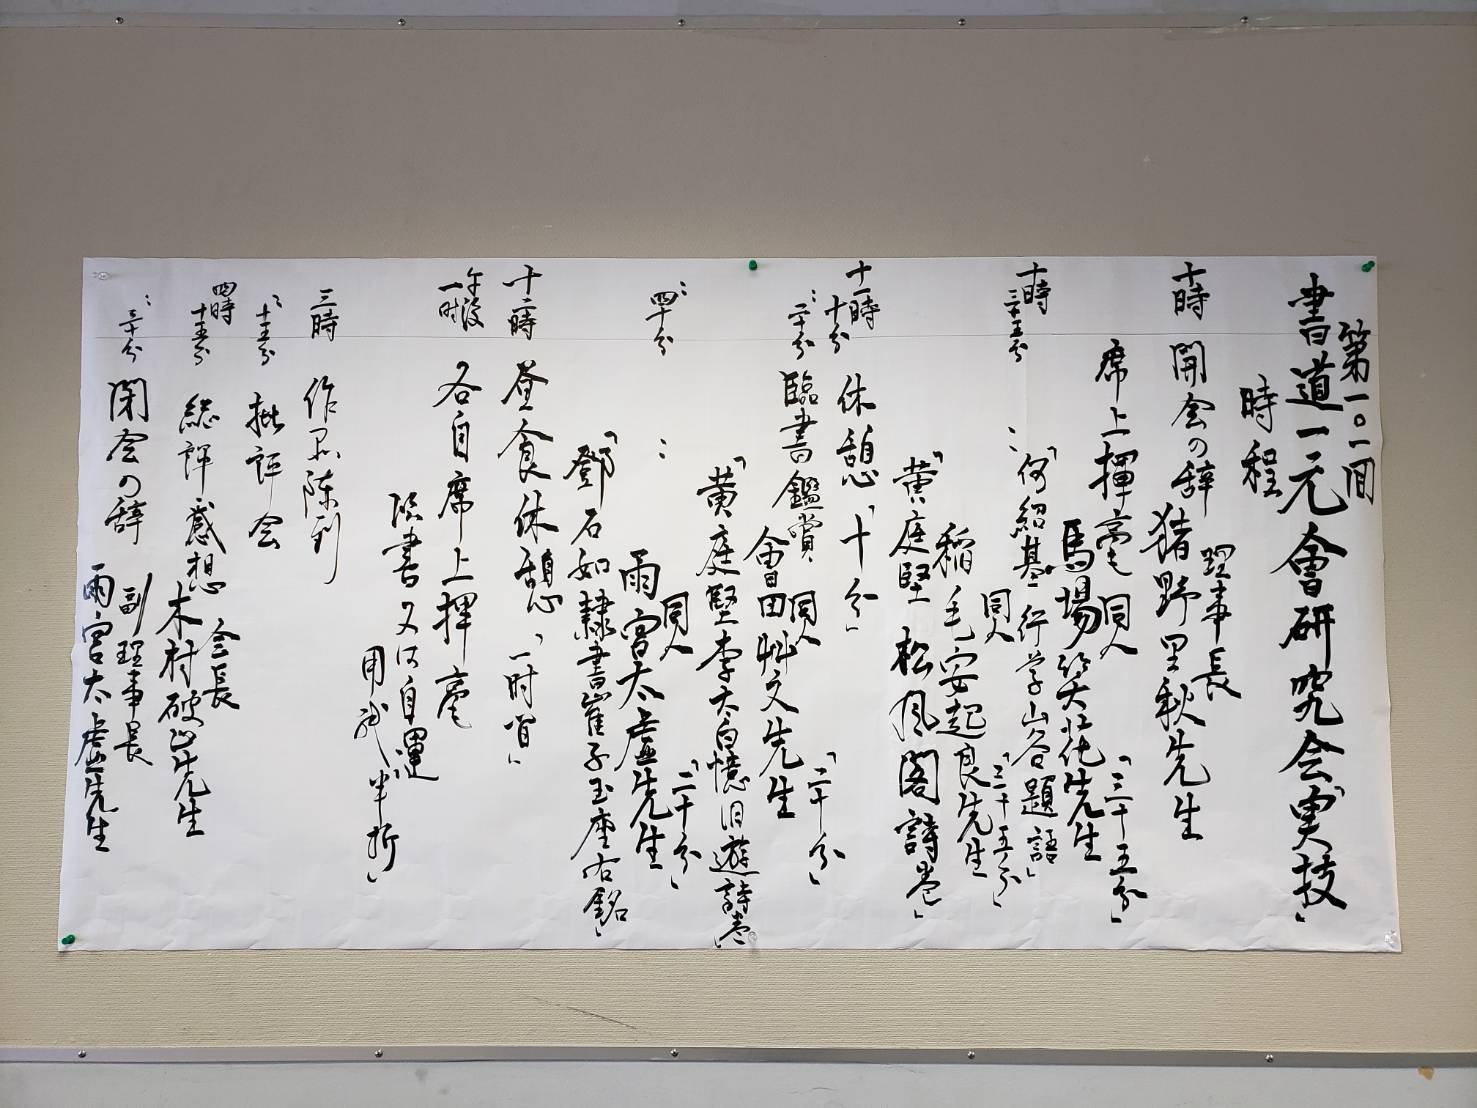 第一〇一回
書道一元會研究会「実技」
時程
十時 開会の辞 理事長
猪野里秋先生
席上揮毫 同人 「三十五分」
馬場 先生
十時三十五分 〃 同人 「三十五分」
「何紹基 行学山谷題語」
稲毛安起良先生
「黄庭堅 松風閣詩巻」
十一時十分 休憩「十分」
〃二十分 臨書鑑賞 同人 「二十分」
會田艸文先生
「黄庭堅李太白憶旧遊詩巻」
〃四十分 〃 同人 「二十分」
雨宮太虚先生
「鄧石如隷書崔子玉座右銘」
十二時 昼食休憩「一時間」
午後一時 各自席上揮毫
臨書又は自運
用紙「半折」
三時 作品陳列
〃十五分 批評会
四時十五分 総評感想 会長
木村破山先生
〃三十分 閉会の辞 副理事長
雨宮太虚先生